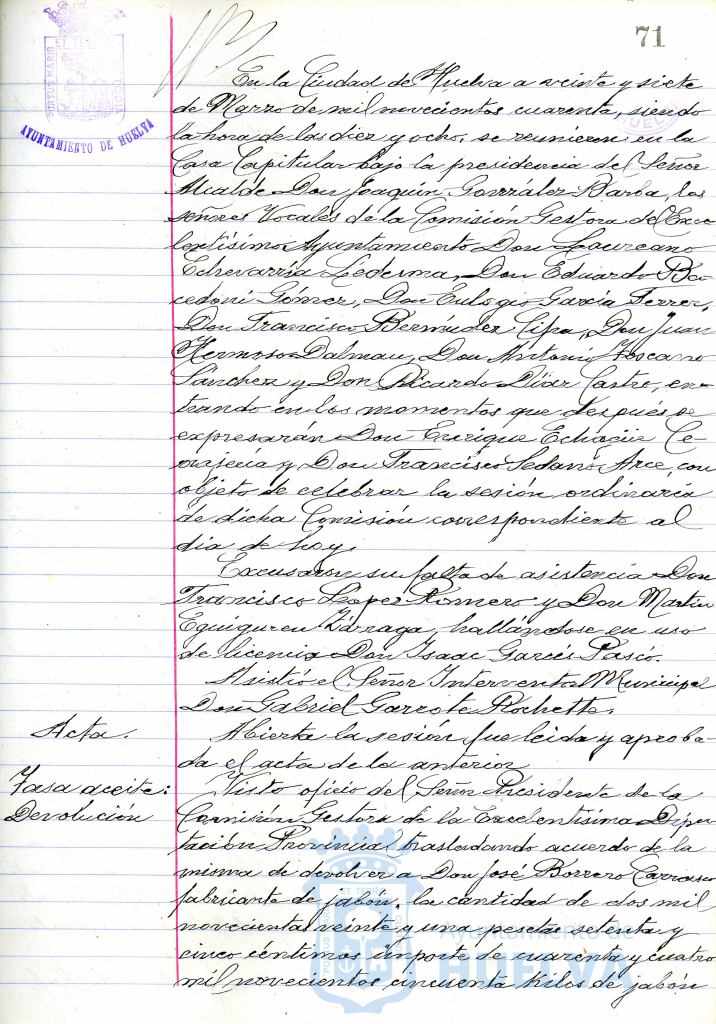 71
PORTUS MARIS
ET TERRÆ
AYUNTAMIENTO DE HUELVA
En la Ciudad de Huelva a veinte y siete
de Marzo de mil novecientos cuarenta, siendo
la hora de las diez y ocho, se reunieron en la
Casa Capitular bajo la presidencia del Señor
Alcalde Don Joaquin González Barba, los
señores Vocales de la Comisión Gestora del Exce-
lentísimo Ayuntamiento Don Laureano
Echevarría Ledesma, Don Eduardo
Gómez, Don Eulogio García Ferrer,
Don Francisco Bermúdez Cipa, Don Juan
Hermoso Dalmau, Don Antonio Toscano
Sánchez y Don Ricardo Díaz Castro, en-
trando en los momentos que después se
expresarán Don Enrique Echagüe
y Don Francisco Sedano Arce, con
objeto de celebrar la sesión ordinaria
de dicha Comisión correspondiente al
dia de hoy.
Excusaron su falta de asistencia Don
Francisco López Romero y Don Martin
Eguiguren Zárraga, hallándose en uso
de licencia Don Isaac Garcés Pascó.
Asistió el Señor Interventor Municipal
Don Gabriel Garrote Rochette.
Acta.
Abierta la sesión, fue leida y aproba-
da el acta de la anterior
Tasa aceite:
Devolución
Visto oficio del Señor Presidente de la
Comisión Gestora de la Excelentísima Dipu-
tación Provincial trasladando acuerdo de la
misma de devolver a Don José Borrero Carrasco
fabricante de jabón, la cantidad de dos mil
novecientas veinte y una pesetas setenta y
cinco céntimos importe de cuarenta y cuatro
mil novecientos cincuenta kilos de jabón
Ayuntamiento de
HUELVA